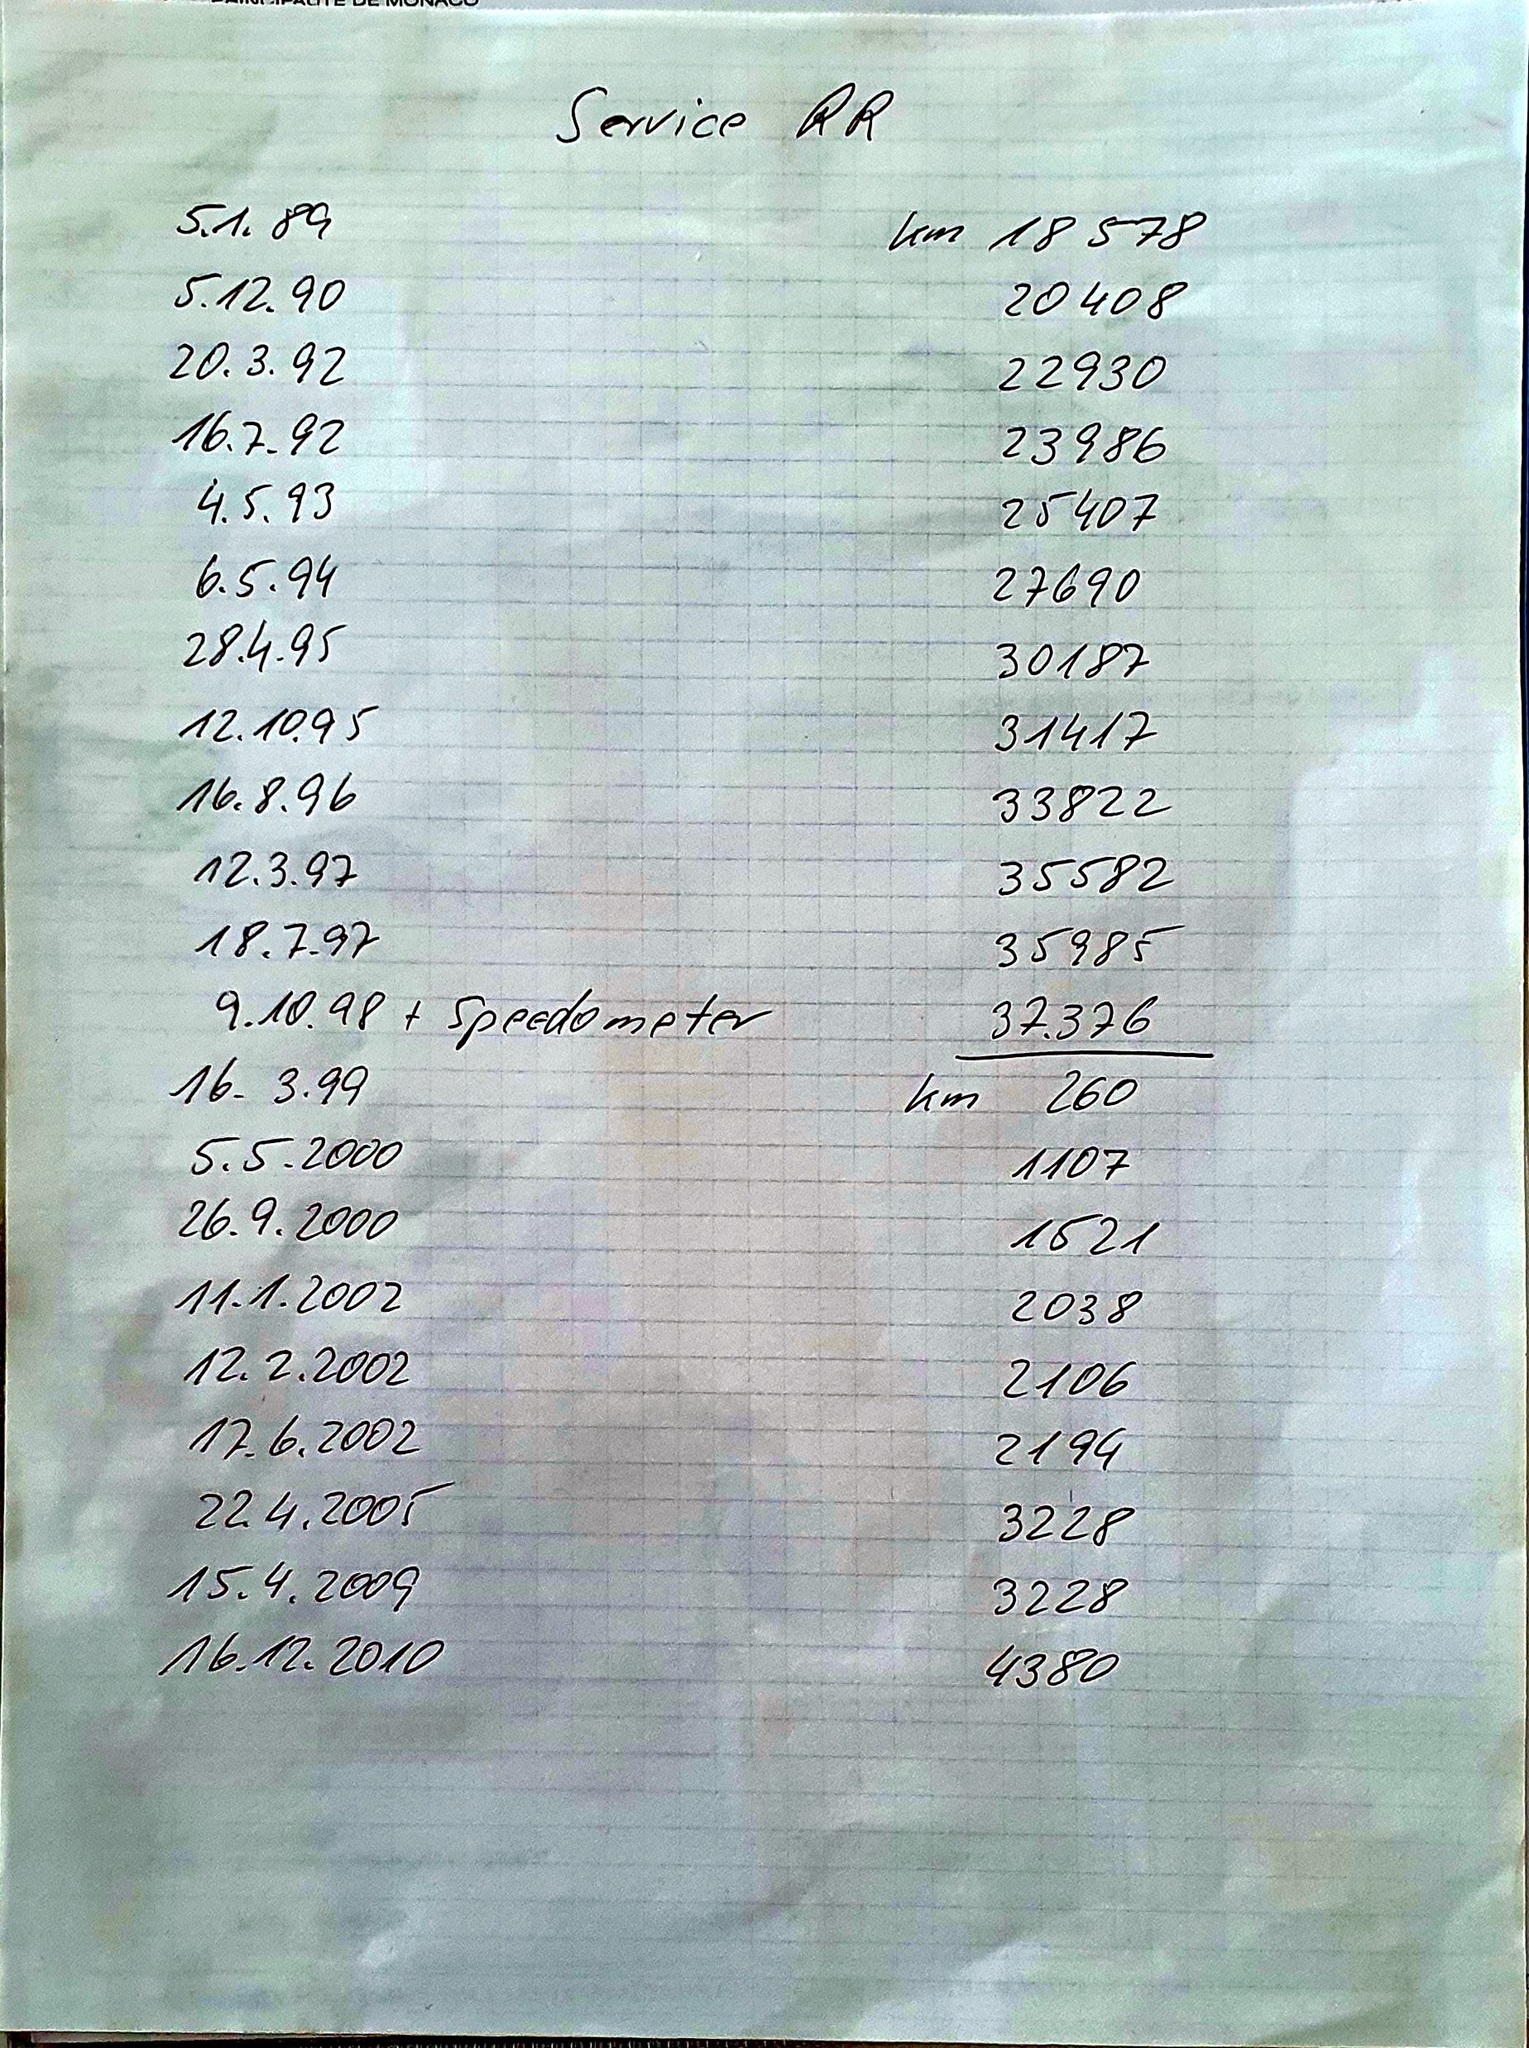 PRINCIPAUTÉ DE MONACO
Service RR
5.1.89 km 18578
5.12.90 20408
20.3.92 22930
16.7.92 23986
4.5.93 25407
6.5.94 27690
28.4.95 30187
12.10.95 31417
16.8.96 33822
12.3.97 35582
18.7.97 35985
9.10.98 + Speedometer 37.376
16.3.99 km 260
5.5.2000 1107
26.9.2000 1521
11.1.2002 2038
12.2.2002 2106
17.6.2002 2194
22.4.2005 3228
15.4.2009 3228
16.12.2010 4380